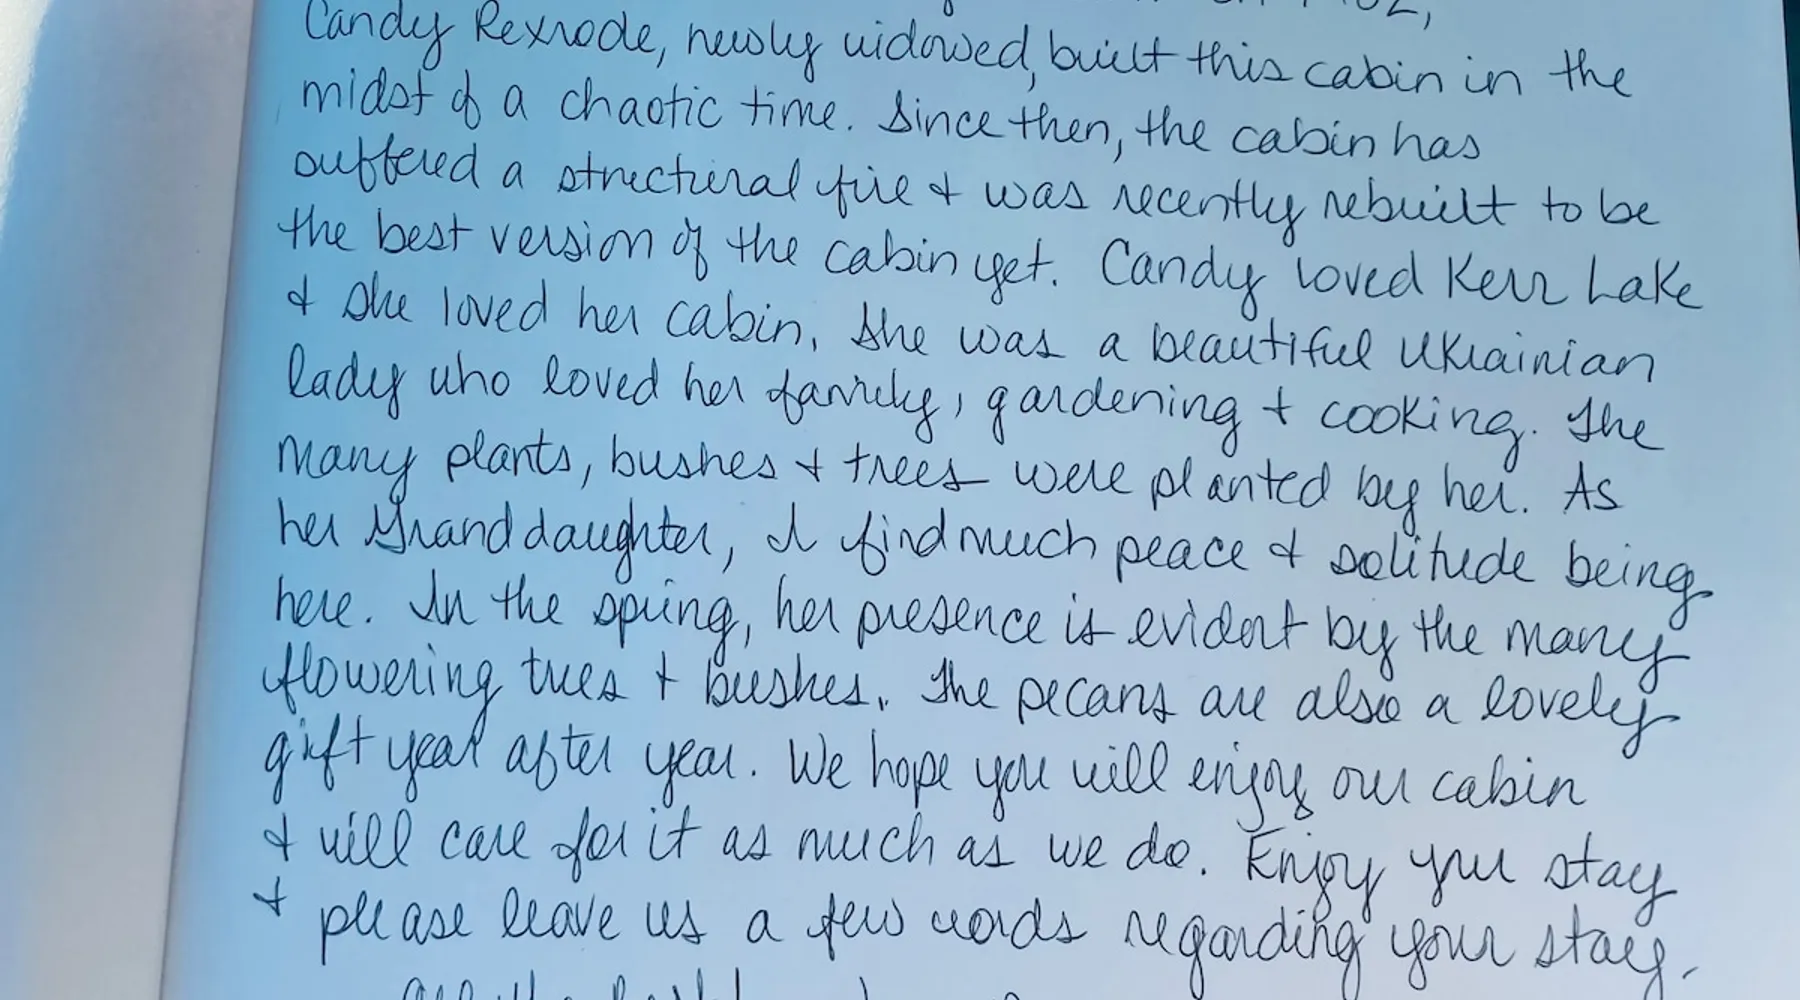 Candy Rexrode, newly widowed, built this cabin in the
midst of a chaotic time. Since then, the cabin has
suffered a structural fire & was recently rebuilt to be
the best version of the cabin yet. Candy loved Kerr Lake
& she loved her cabin. She was a beautiful Ukrainian
lady who loved her family, gardening & cooking. The
many plants, bushes & trees were planted by her. As
her Granddaughter, I find much peace & solitude being
here. In the spring, her presence is evident by the many
flowering trees & bushes. The pecans are also a lovely
gift year after year. We hope you will enjoy our cabin
& will care for it as much as we do. Enjoy your stay
& please leave us a few words regarding your stay.